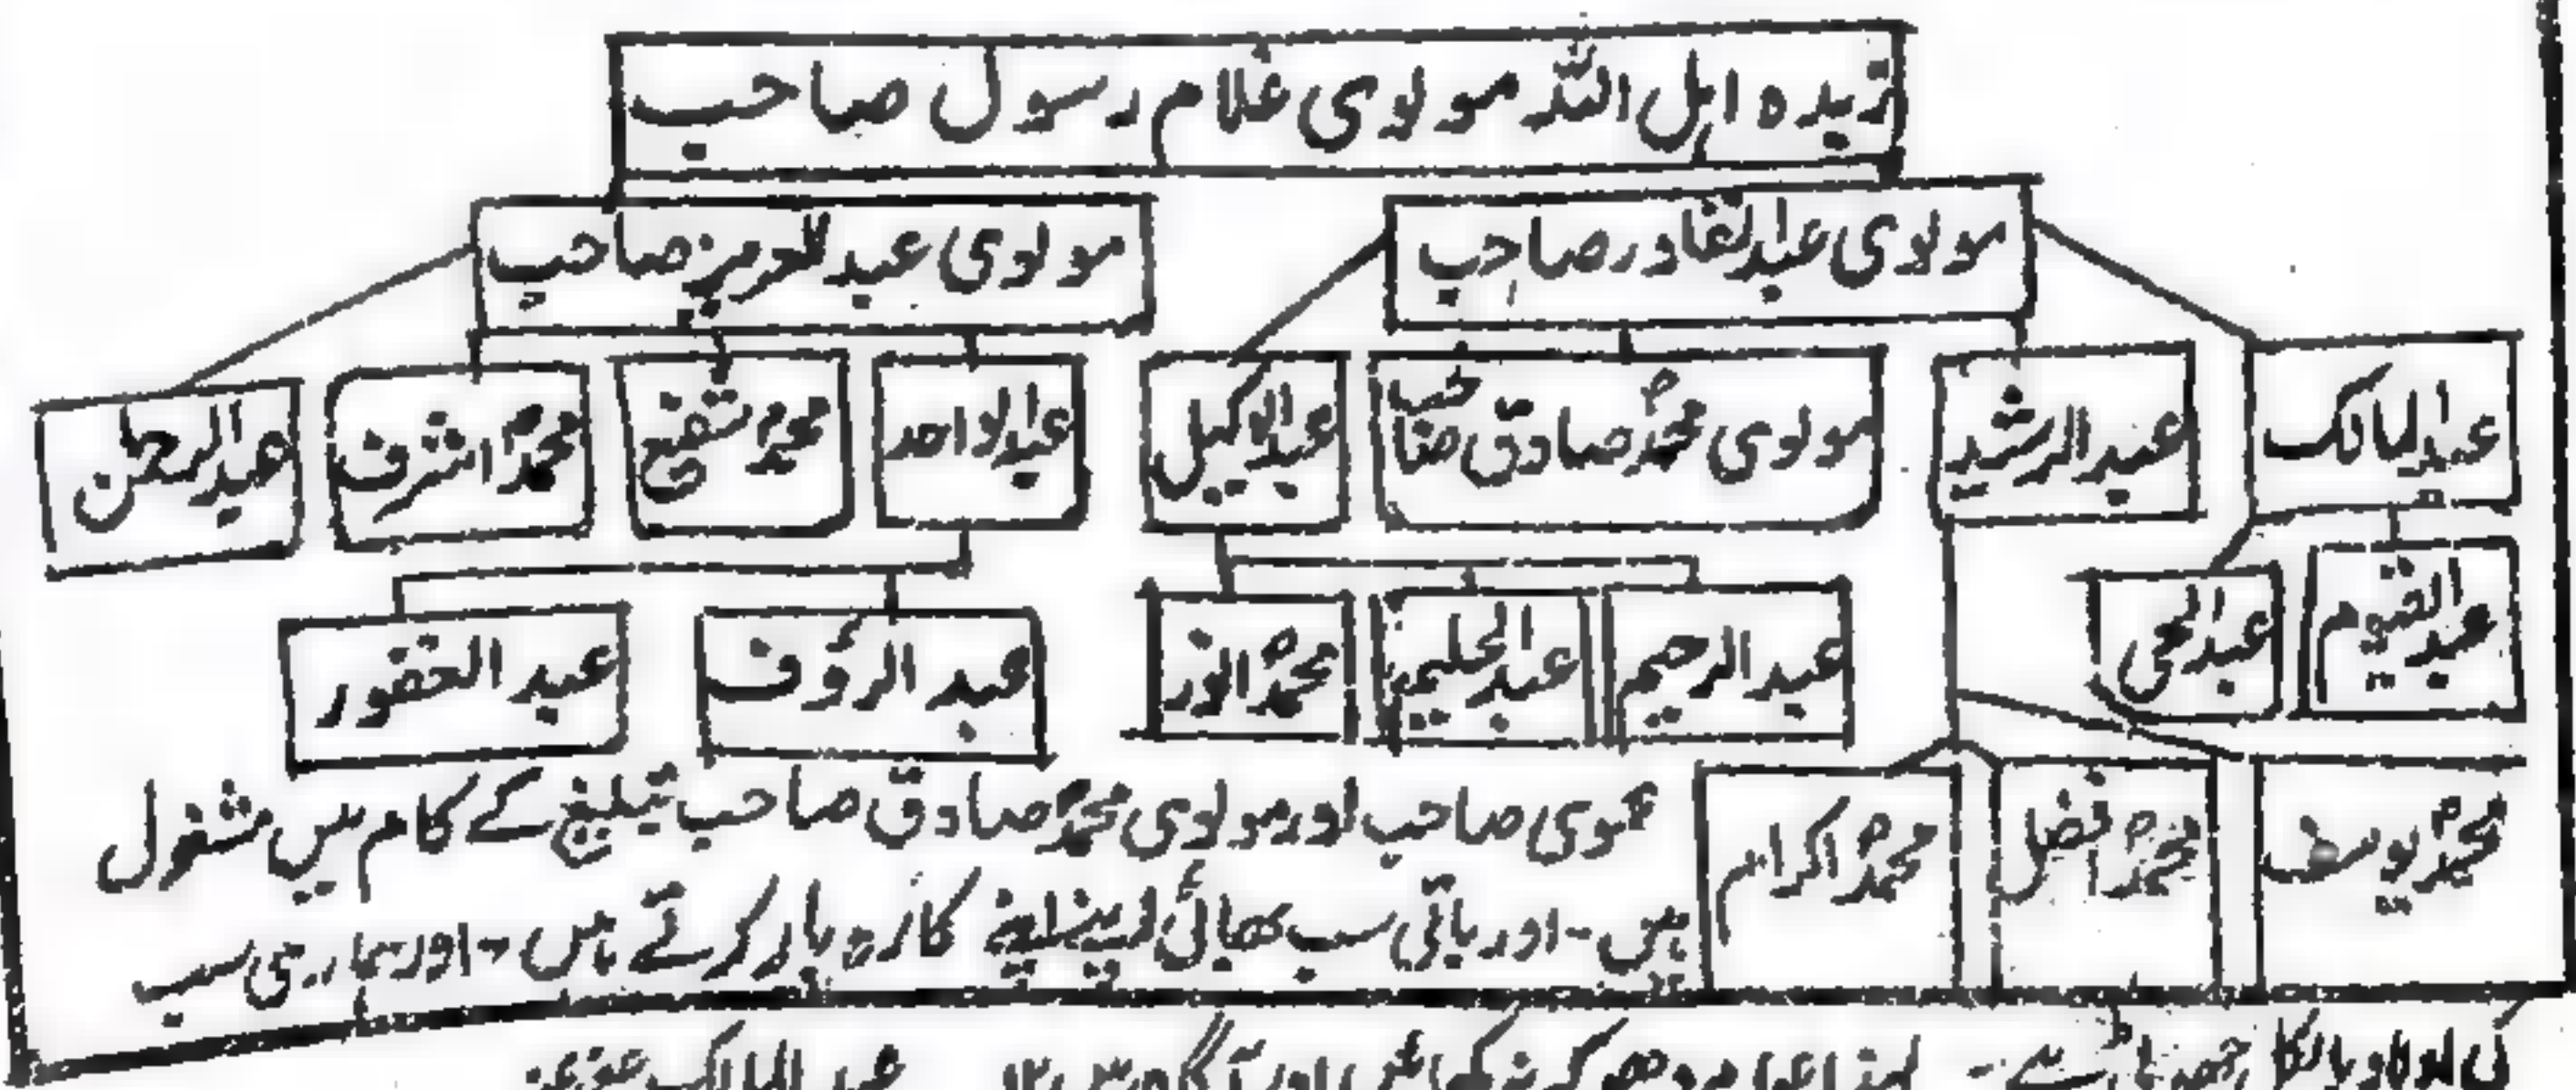 زبدہ اہل اللہ مولوی غلام رسول صاحب
مولوی عبدالقادر صاحب
مولوی عبدالعزیز صاحب
عبدالمالک
عبدالرشید
مولوی محمدؐ صادق صاحب
عبدالوکیل
عبدالواحد
محمدؐ شفیع
محمدؐ اشرف
عبدالرحمٰن
عبدالقیوم
عبدالحی
عبدالرحیم
عبدالحلیم
محمدؐ انور
عبدالرؤف
عبدالغفور
محمدؐ یوسف
محمدؐ افضل
محمدؐ اکرام
عموی صاحب اور مولوی محمدؐ صادق صاحب تبلیغ کے کام میں مشغول
ہیں - اور باقی سب بھائی اپنے اپنے کاروبار کرتے ہیں - اور ہماری سب
عبدالمالک عفی عنہ